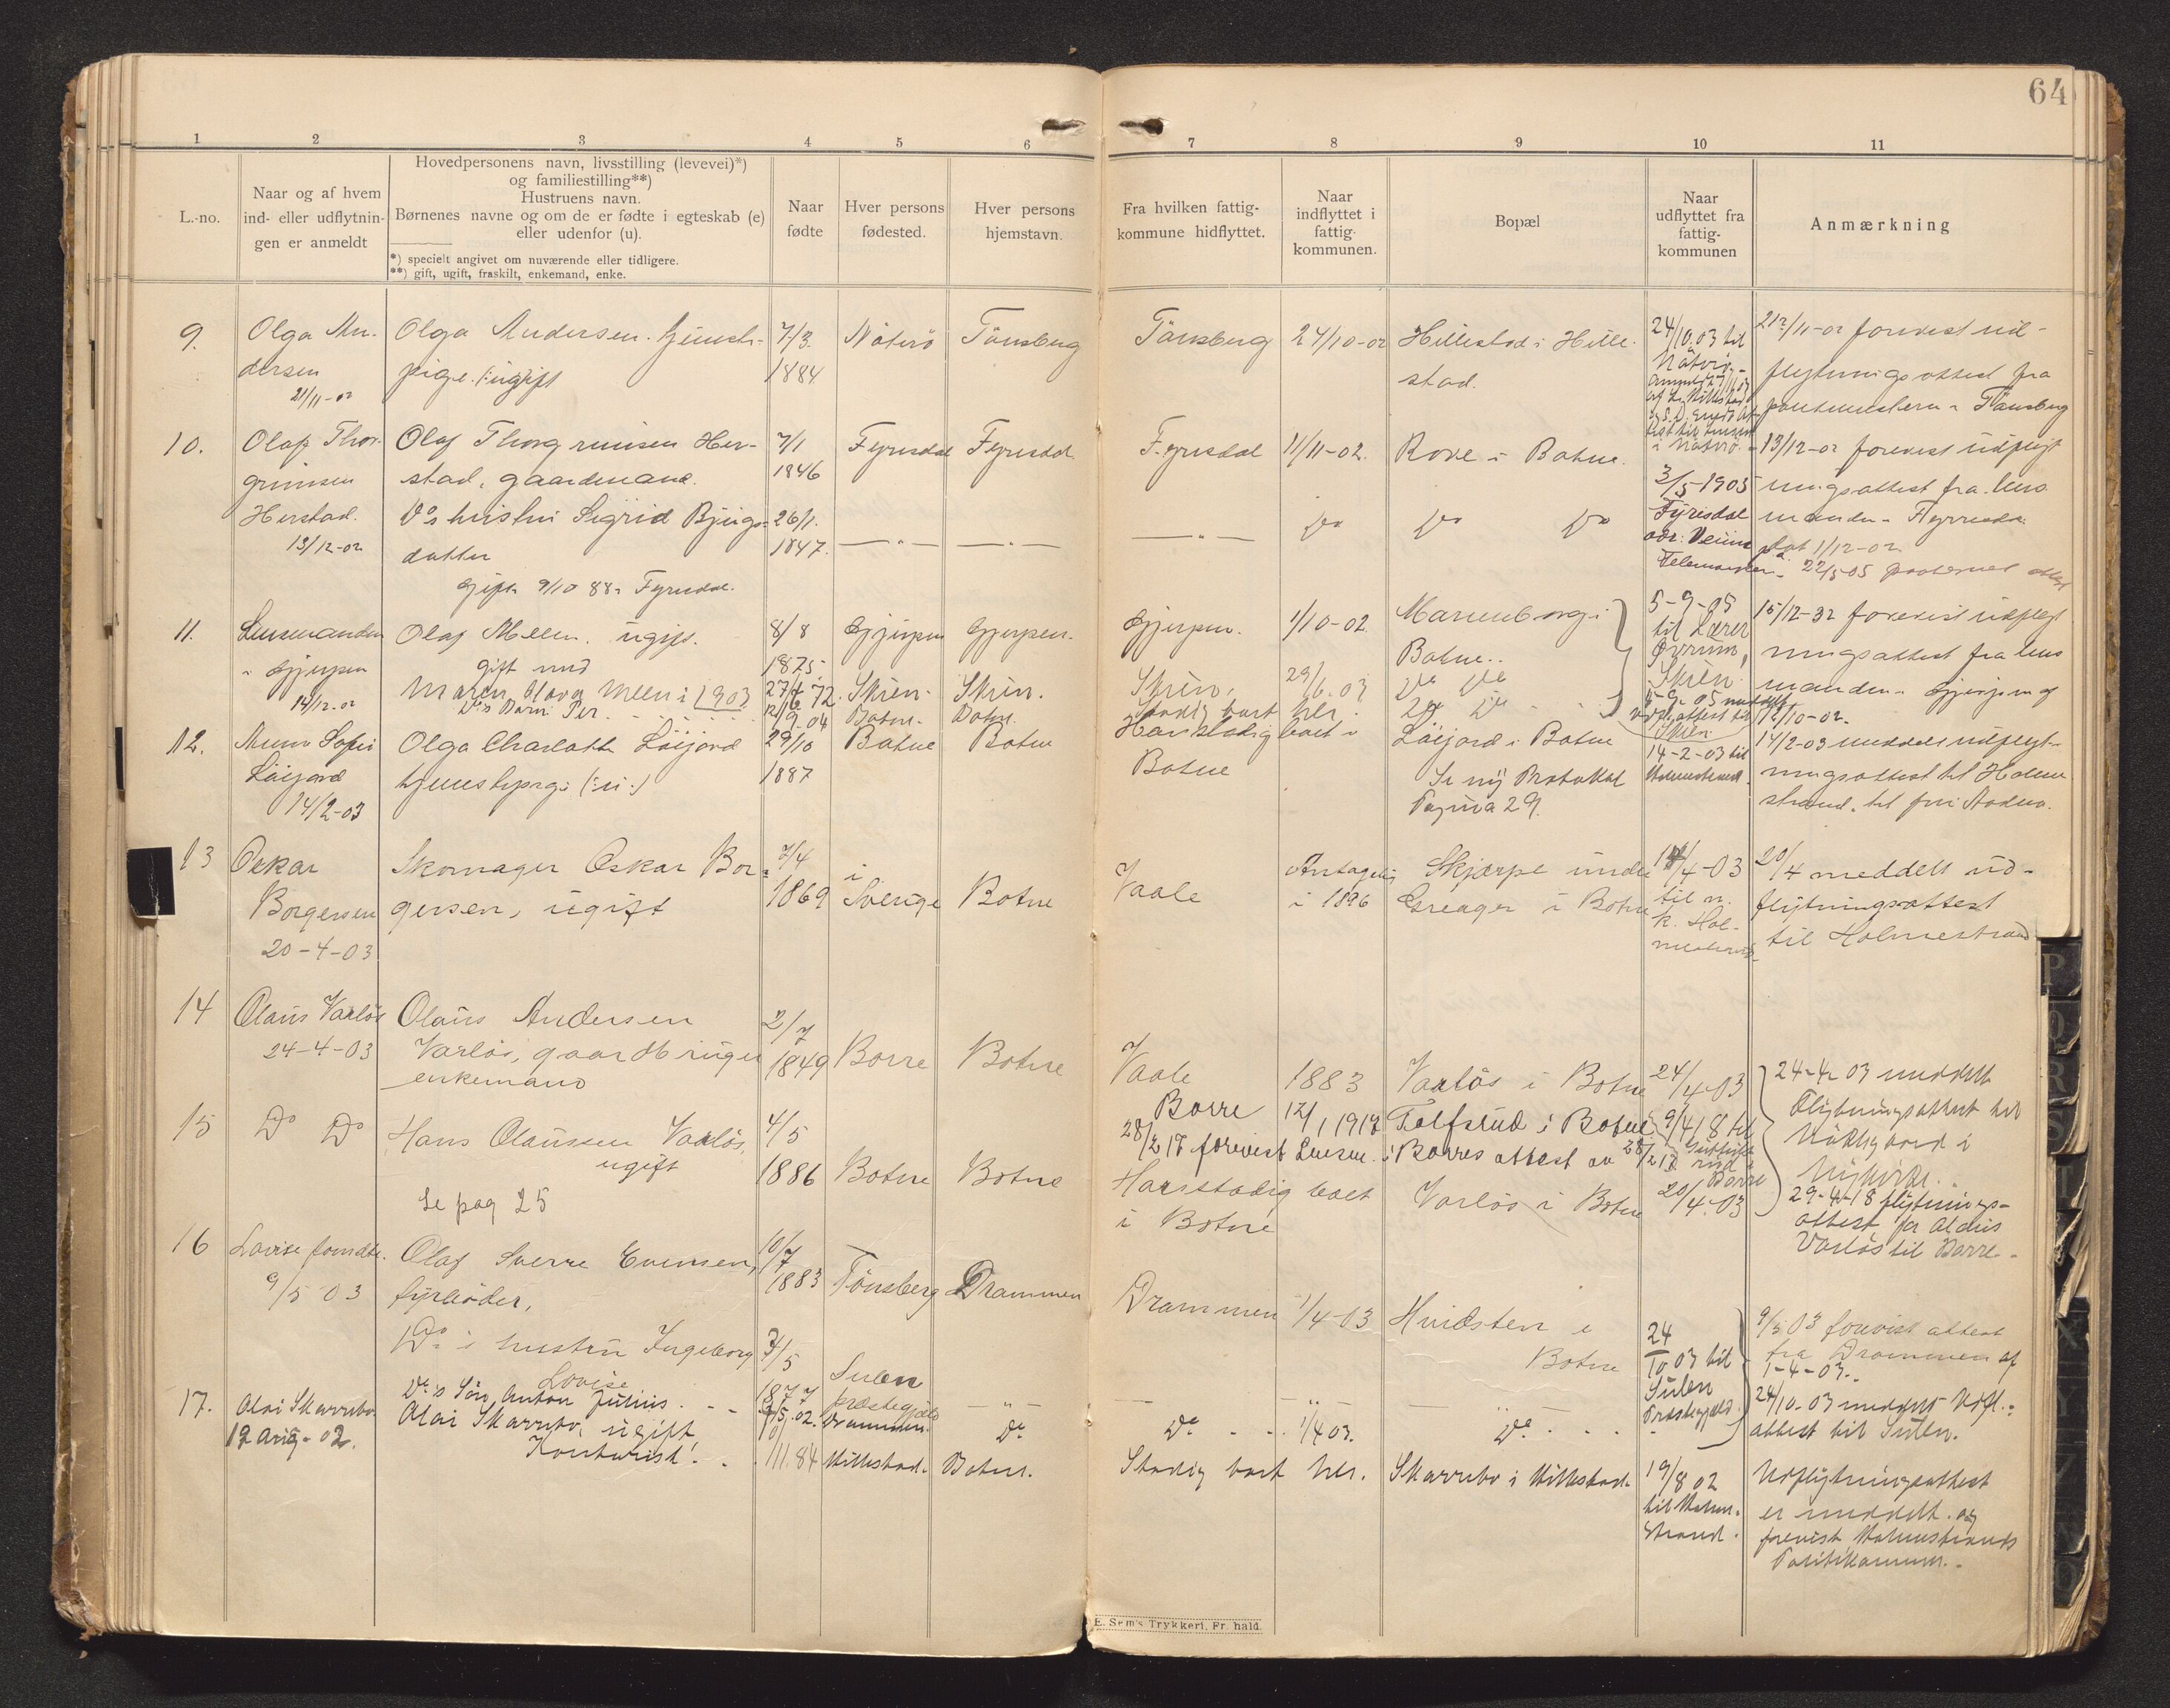 64
1 2 3 4 5 6 7 8 9 10 11
L.-no.
Naar og af hvem
ind- eller udflytnin-
gen er anmeldt
Hovedpersonens navn, livsstilling (levevei)*)
og familiestilling**)
Hustruens navn.
Børnenes navne og om de er fødte i egteskab (e)
eller udenfor (u).
*) specielt angivet om nuværende eller tidligere.
**) gift, ugift, fraskilt, enkemand, enke.
Naar
fødte
Hver persons
fødested.
Hver persons
hjemstavn.
Fra hvilken fattig-
kommune hidflyttet.
Naar
indflyttet i
fattig-
kommunen.
Bopæl
Naar
udflyttet fra
fattig-
kommunen
Anmærkning
9.
Olga An-
dersen
21/11-02
Olga Andersen. tjeneste-
pige. (:ugift
7/3
1884
Nøterø
Tønsberg
Tønsberg
24/10-02
Hillestad i Hille-
stad.
24/10.03 til
Nøterø
forevist ud-
flytningsattest fra
Tønsberg
10.
Olaf Thor-
grimsen
Herstad.
13/12-02
Olaf Thorgrimsen Her-
stad, gaardmand.
Do's hustru Sigrid Bjugs-
datter
Gift 9/10 88 i Fyrisdal.
7/1
1846
26/1.
1847.
Fyrisdal
Fyrisdal
— " —
— " —
Fyrisdal
— " —
11/11-02.
Do
Rove i Botne.
Do Do
3/5-1905
Fyrisdal
adr. Veum
Telemarken
13/12-02 forevist udflyt
ningsattest fra lens
manden i Fyrrisdal
dat 1/12-02.
22/5 05
11.
Lensmanden
i Gjerpen
14/12-02
Olaf Meen. ugift.
gift med
Maren Olava Meen i 1903
Do's Barn Per.
8/8
1875.
27/4 72.
12/9-04
Gjerpen
Skien.
Botne.
Gjerpen.
Skien.
Botne.
Gjerpen.
Skien.
Stadig boet her.
1/10-02.
29/6.03
Marienborg i
Botne.
Do Do
Do Do
5-9-05
til Lærer
Skien.
5-9-05 meddelt
udfl.attest til
Skien
forevist udflyt
ningsattest fra lens
manden i Gjerpen af
12/10-02.
12.
Sofie
Løijord
14/2-03
Olga Charlotte Løijord
tjenestepige (:u:)
29/10
1887
Botne
Botne
Har stadig boet i
Botne
Løijord i Botne
Se ny Protokol
Pagina 29.
14-2-03 til
Holmestrand.
14/2-03 meddelt udflyt-
ningsattest til Holme
strand.
13
Oskar
Borgersen
20-4-03
Skomager Oskar Bor-
gersen, ugift
7/4
1869
i
Sverige
Botne
Vaale
Antagelig
i 1896
Skjærpe under
Greager i Botne
til
Hol-
20/4 meddelt ud-
flytningsattest
til Holmestrand
14
Olaus Varløs
24-4-03
Olaus Andersen
Varløs, gaardbruger
enkemand
2/7
1849
Borre
Botne
Vaale
Borre
1883
Varløs i Botne
i Botne
24/4-03
9/4 18 til
28/2 18 forevist Lensm. i Borres attest av 28/2 18
Borre
24-4-03 meddelt
flytningsattest til
15
Do Do
Hans Olaussen Varløs,
ugift
Se pag 25
4/5
1886
Botne
Botne
Har stadig boet
i Botne
Varløs i Botne
20/4-03
29-4-18 flytnings-
attest for Olaus
Varløs til Borre.
16
9/5 03
Olaf Sverre Evensen,
fyrbøder,
Do i hustru Ingeborg
Lovise
Do's Søn Anton Julius.
10/7
1883
7/5
1877
Tønsberg
Sulen
præstegjeld
Drammen.
Drammen
— " —
Do
Drammen
Do
1/4-03
1/4 03.
Hvidsten i
Botne
Do
24/10 03 til
Sulen
Præstegjeld.
9/5 03 forevist attest
fra Drammen af
1-4-03.
24/10-03 meddelt Udfl.-
attest til Sulen.
17.
Olai Skarrebo
12 Aug-02.
Olai Skarrebo, ugift
Kontorist.
1/11.84
Hillestad.
Botne.
Stadig boet her.
Skarrebo i Hillestad.
19/8 02
til Holme-
strand.
Udflytningsattest
er meddelt. og
forevist Holmestrands
Politikammer.
E. Sem's Trykkeri. Fr. hald.